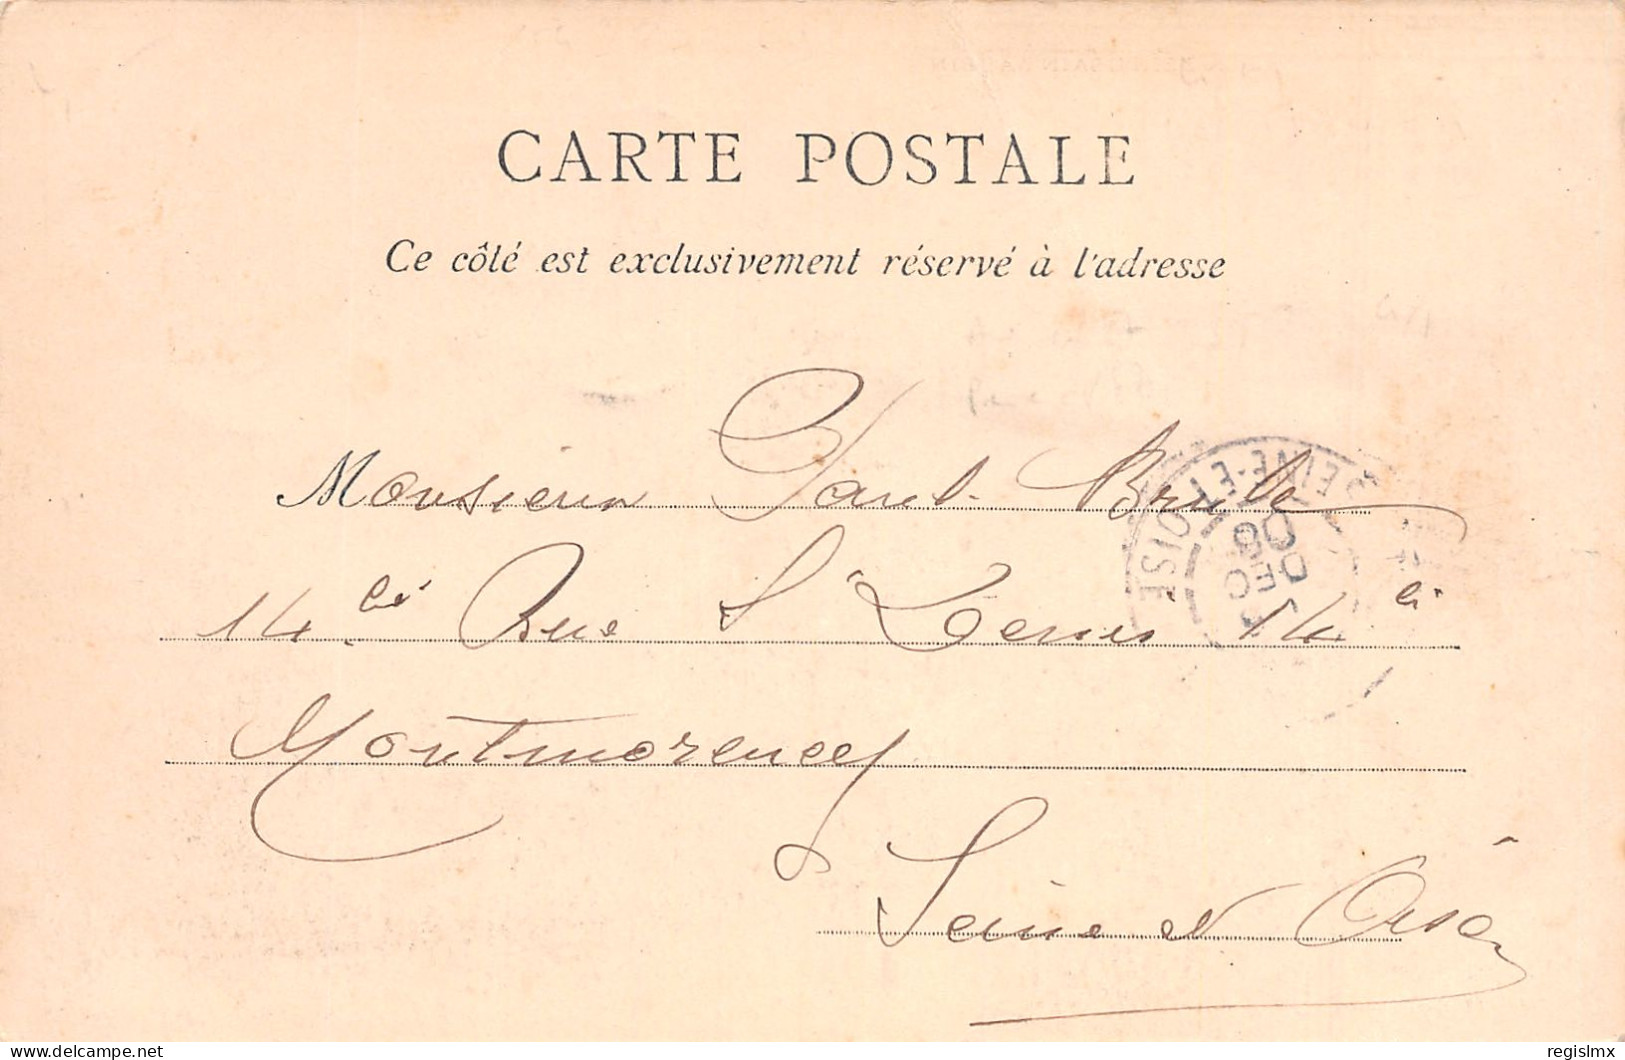 CARTE POSTALE
Ce côté est exclusivement réservé à l'adresse
Monsieur Paul
14 Rue St Denis 14
Montmorency
Seine et Oise
SEINE-ET-OISE
DEC
delcampe.net
regislmx